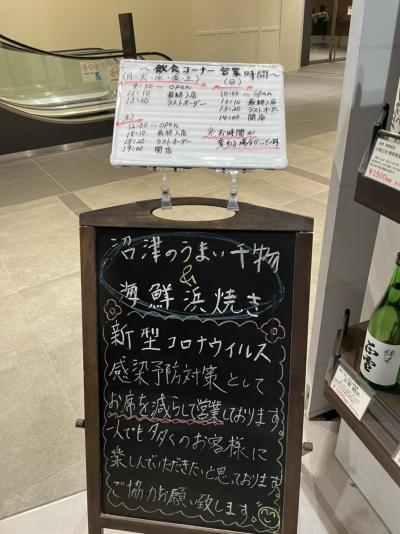 ～飲食コーナー 営業時間～
(月・火・水・金・土)
9:30～open
13:10 最終入店
13:20 ラストオーダー
(木)
12:00～open
18:10 最終入店
18:20 ラストオーダー
19:00 閉店
(日)
10:00～open
13:10 最終入店
13:20 ラストオーダー
14:00 閉店
※お時間が
変わる場合がございます
沼津のうまい干物
&
海鮮浜焼き
新型コロナウイルス
感染予防対策として
お席を減らして営業しております。
一人でも多くのお客様に
楽しんでいただきたいと思っております。
ご協力お願い致します。
正雪
¥1500